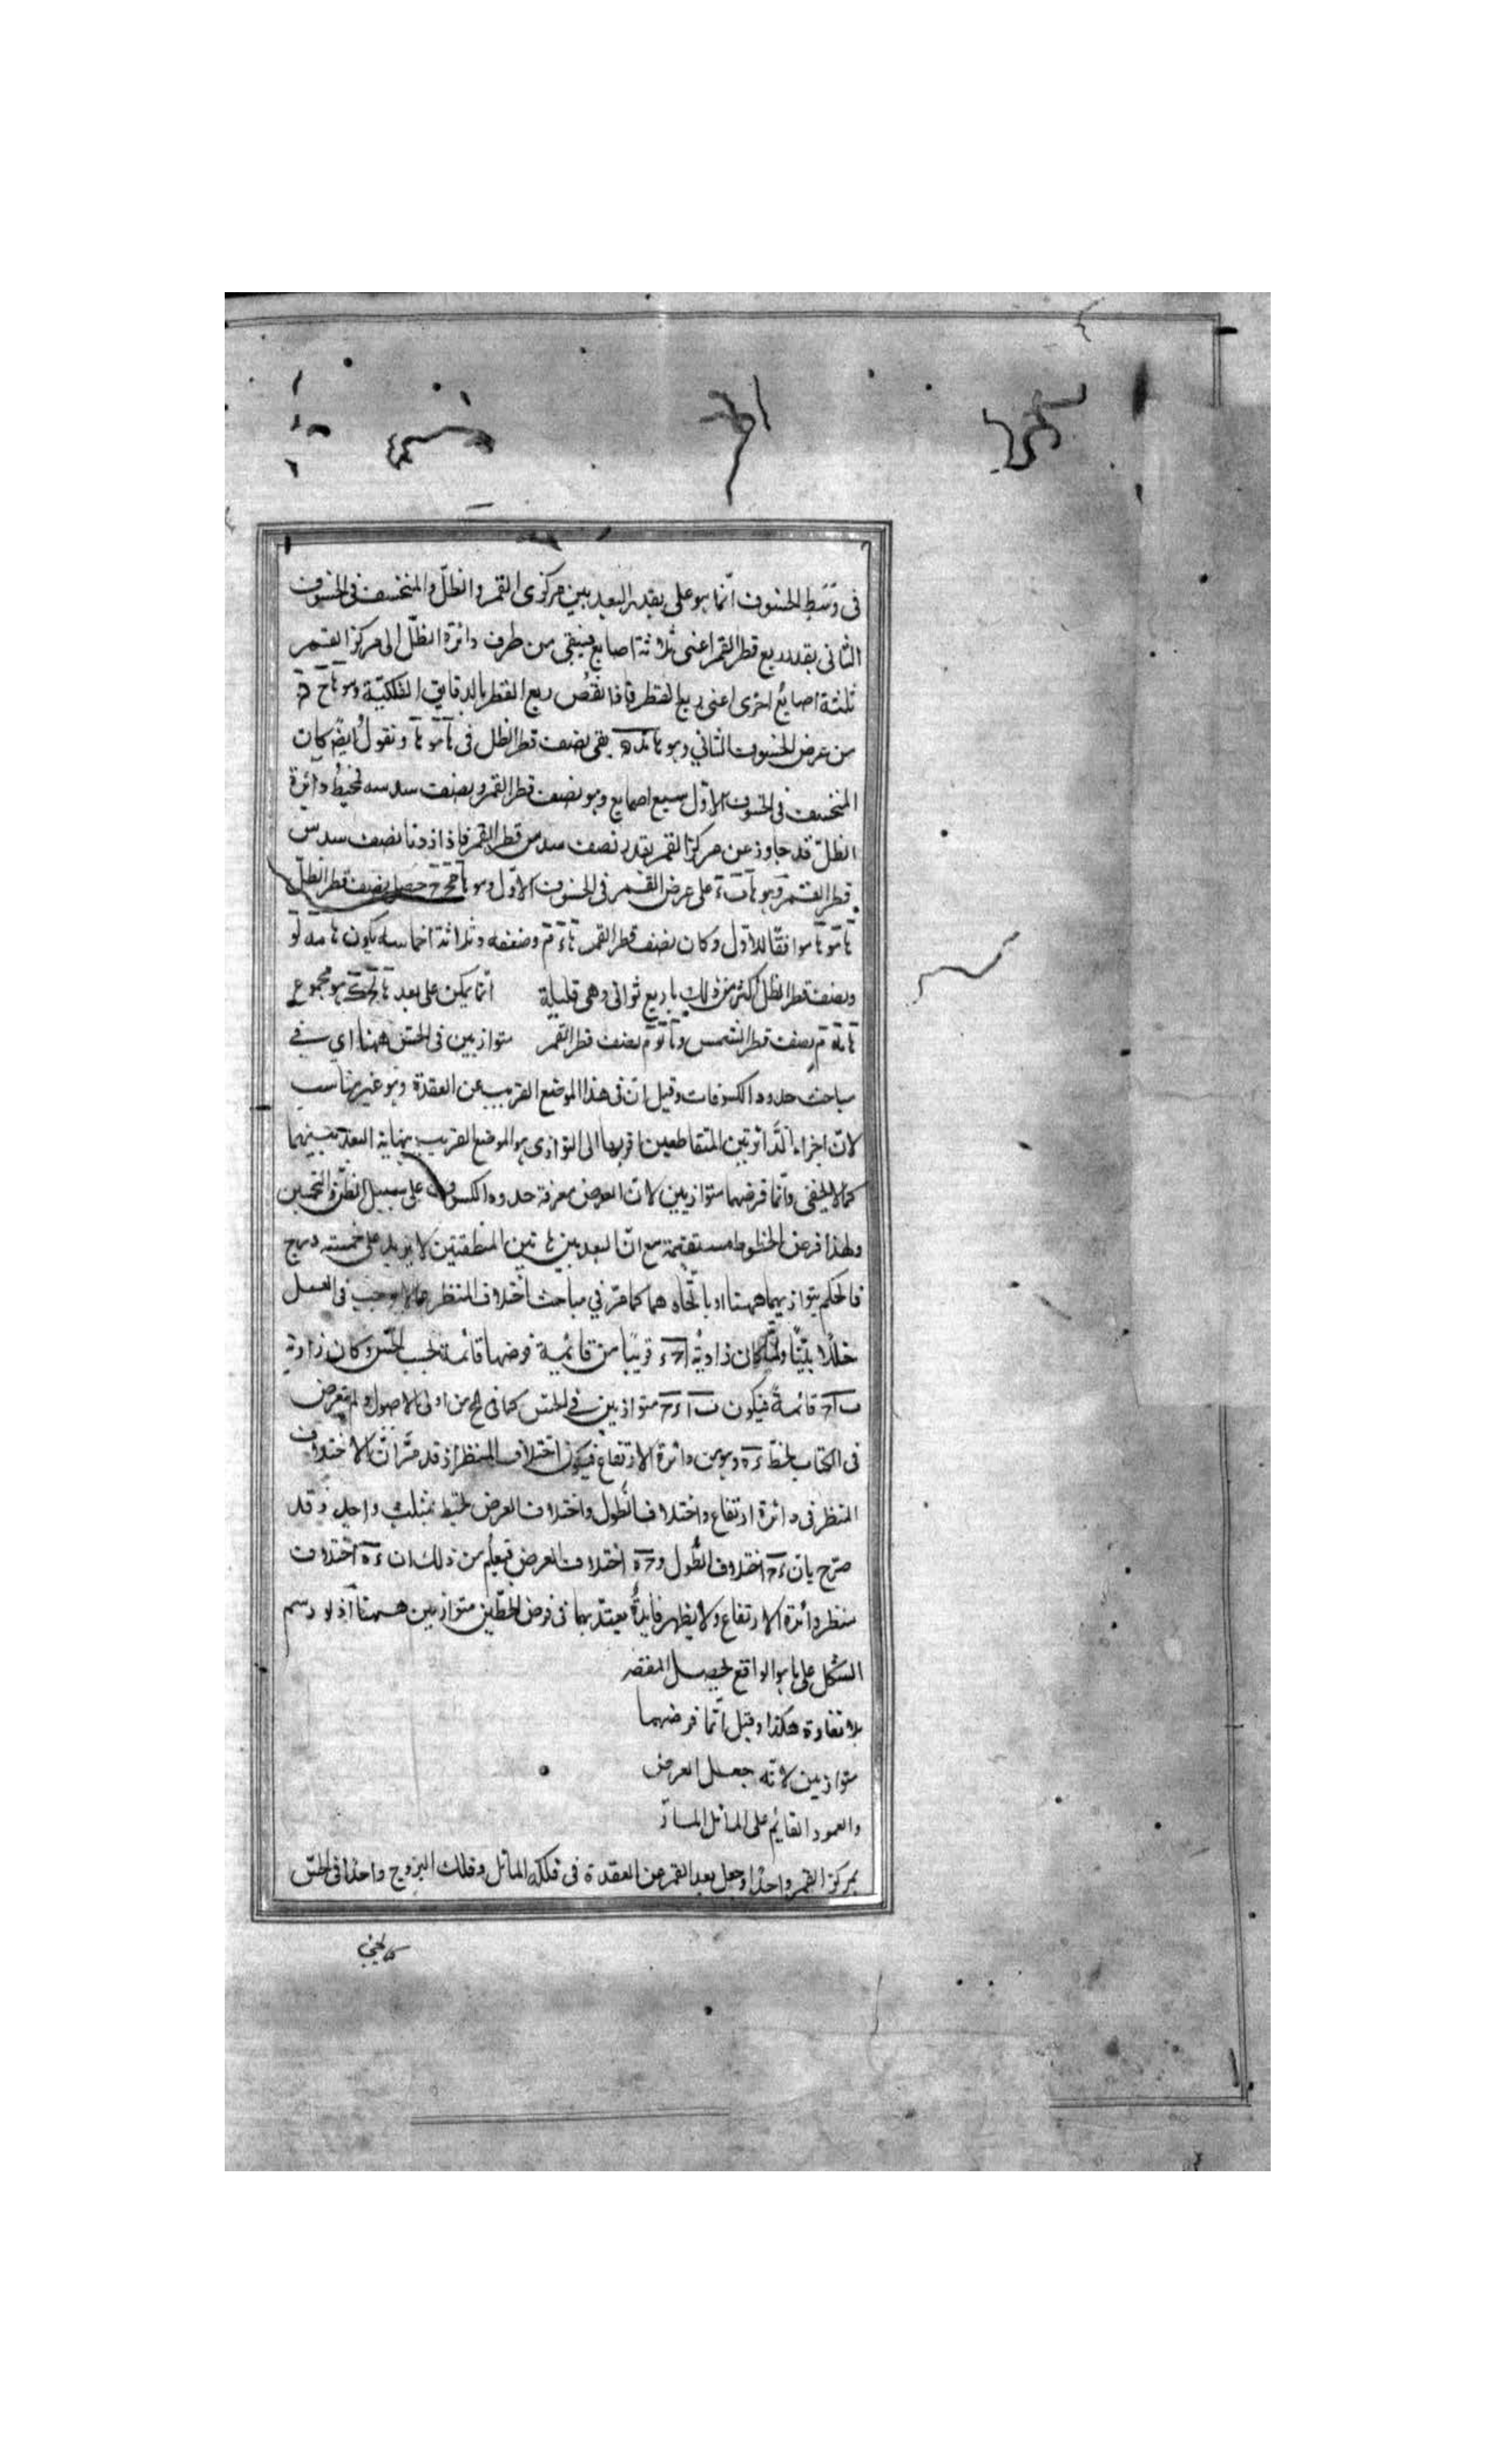 في وسط الخسوف انّما هو على بقدر البعد بين مركزى القمر والظلّ والمنخسف فى الخسوف
الثانى بقدر ربع قطر القمر اعنى ثلاثة اصابع فيبقى من طرف دائرة الظلّ الى مركز القمر
ثلثة اصابع اخرى اعنى ربع القطر فاذا نقص ربع القطر بالدقايق الفلكيّة وهو
من عرض الخسوف الثاني وهو بقى نصف قطر الظل فى ونقول ايضًا كان
المنخسف فى الخسوف الاوّل سبع اصابع وهو نصف قطر القمر ونصف سدسه فمحيط دائرة
الظلّ قد جاوز عن مركز القمر بقدر نصف سدس قطر القمر فاذا زدنا نصف سدس
قطر القمر وهو على عرض القمر فى الخسوف الاوّل وهو حصل نصف قطر الظلّ
موافقًا للاوّل وكان نصف قطر القمر وضعفه وثلاثة اخماسه يكون
ونصف قطر الظل اكثر من ذلك باربع ثوانى وهى قليلة انّما يمكن على بعد هو مجموع
نصف قطر الشمس و نصف قطر القمر متوازيين فى الحسّ ههنا اي في
مباحث حدود الكسوفات وقيل انّ فى هذا الموضع القريب من العقدة وهو غير مناسب
لانّ اجزاء الدّائرتين المتقاطعين اقربها الى التوازى هو الموضع القريب بنهاية البعد بينهما
كما لا يخفى وانّما فرضهما متوازيين لانّ الغرض معرفة حدود الكسوف على سبيل الظنّ والتخمين
ولهذا فرض الخطوط مستقيمة مع انّ البعد بين هاتين المنطقتين لا يزيد على خمسة درج
فالحكم بتوازيهما ههنا او باتّحادهما كما مرّ في مباحث اختلاف المنظر ممّا لا يوجب فى العمل
خللًا بيّنًا ولمّا كان زاوية قريبًا من قائمة فرضها قائمة بحسب الحسّ وكان زاوية
قائمةً فيكون متوازيين في الحسّ كما فى من اولى الاصول ولم يتعرض
فى الكتاب لخطّ وهو من دائرة الارتفاع فيكون اختلاف المنظر اذ قد مرّ انّ الاختلاف
المنظر فى دائرة ارتفاع واختلاف الطول واختلاف العرض يحيط بمثلث واحد وقد
صرّح بان اختلاف الطّول و اختلاف العرض فيعلم من ذلك ان اختلاف
منظر دائرة الارتفاع ولا يظهر فايدةٌ يعتدّ بها فى فرض الخطّين متوازيين ههنا اذ لو رسم
الشكل على ما هو الواقع لحصل المقصد
بلا تفاوت هكذا وقيل انّما فرضهما
متوازيين لانّه جعل العرض
والعمود القايم على المائل المارّ
بمركز القمر واحدًا وجعل بعد القمر من العقدة فى فلكه المائل وفلك البروج واحدًا فى الحسّ